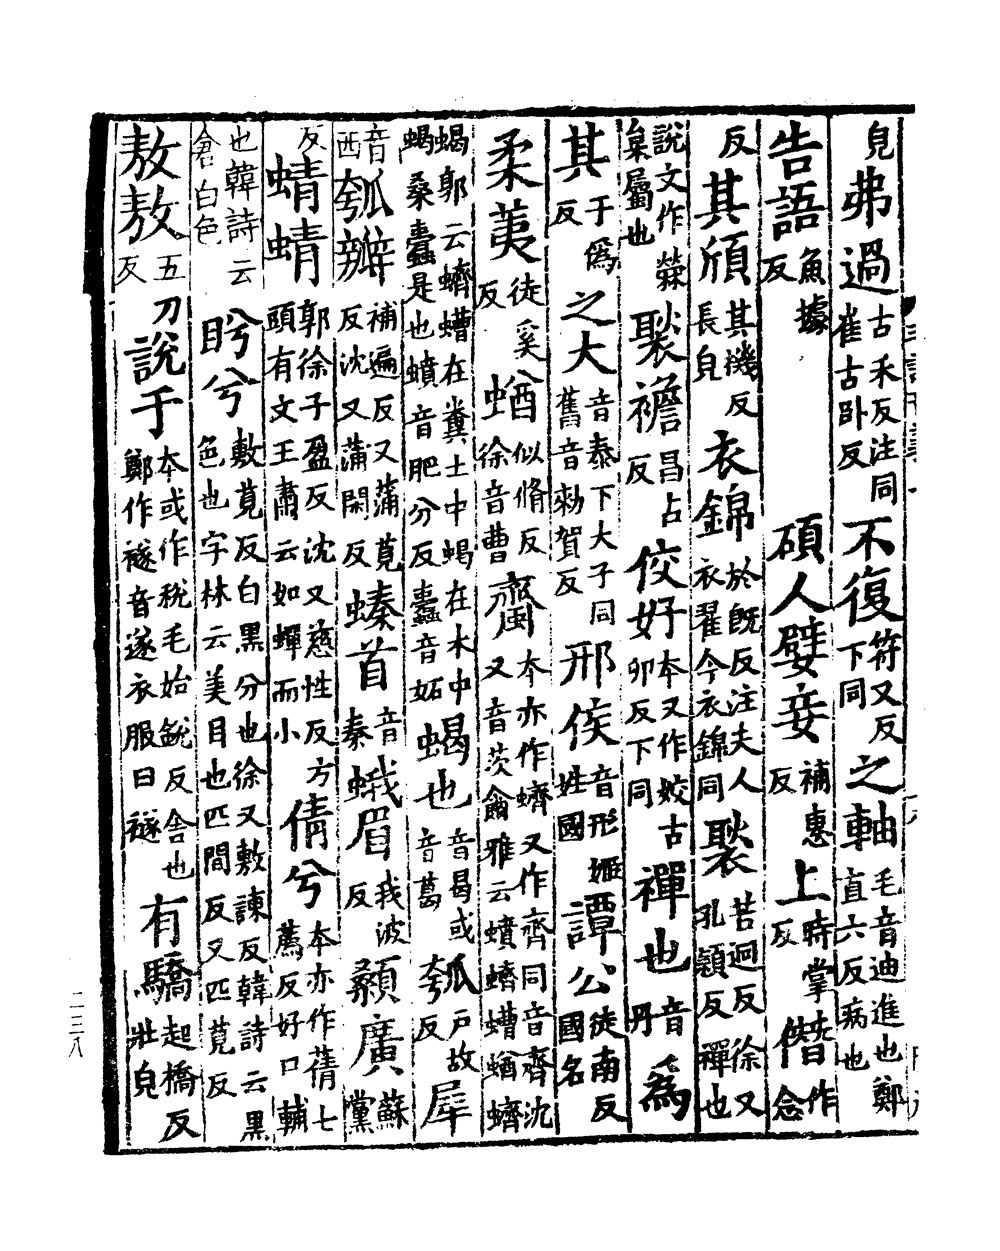 見弗過古禾反注同崔古卧反不復符又反下同之軸毛音迪進也鄭直六反病也
告語魚據反 碩人嬖妾補惠反上時掌反僭作念
反其頎其機反長皃衣錦於旣反注夫人衣翟今衣錦同褧苦迥反徐又孔穎反襌也
說文作檾枲屬也褧襜昌占反佼好本又作姣古卯反下同襌也音丹為
其于僞反之大音泰下大子同舊音勑賀反邢侯音形姬姓國譚公徒南反國名
柔荑徒奚反蝤似脩反徐音曹齏本亦作蠐又作齊同音齊沈又音茨爾雅云蟦蠐螬蝤蠐
蝎郭云蠐螬在糞土中蝎在木中蝎桑蠹是也蟦音肥分反蠹音妬蝎也音曷或音葛瓠戶故反犀
音西瓠瓣補遍反又蒲莧反沈又蒲閑反螓首音秦蛾眉我波反顙廣蘇黨
反蜻蜻郭徐子盈反沈又慈性反方頭有文王肅云如蟬而小倩兮本亦作蒨七薦反好口輔
也韓詩云倉白色盼兮敷莧反白黑分也徐又敷諫反韓詩云黑色也字林云美目也匹間反又匹莧反
敖敖五刀反說于本或作稅毛始銳反舍也鄭作襚音遂衣服曰襚有驕起橋反壯皃
二三八